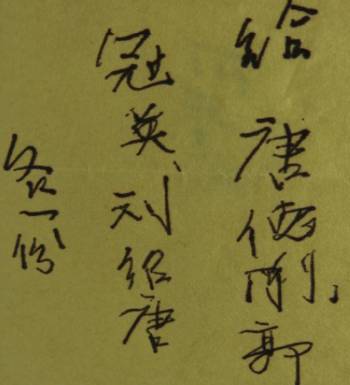 给唐德刚、郭
冠英、刘绍唐
各一份